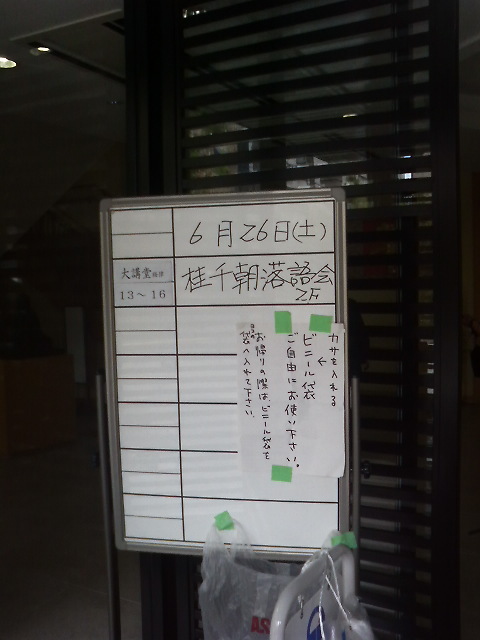 6月26日(土)
大講堂
13～16
桂千朝落語会
2F
カサを入れる
←
ビニール袋
ご自由にお使い下さい。
お帰りの際は、ビニール袋を
袋へ入れて下さい。